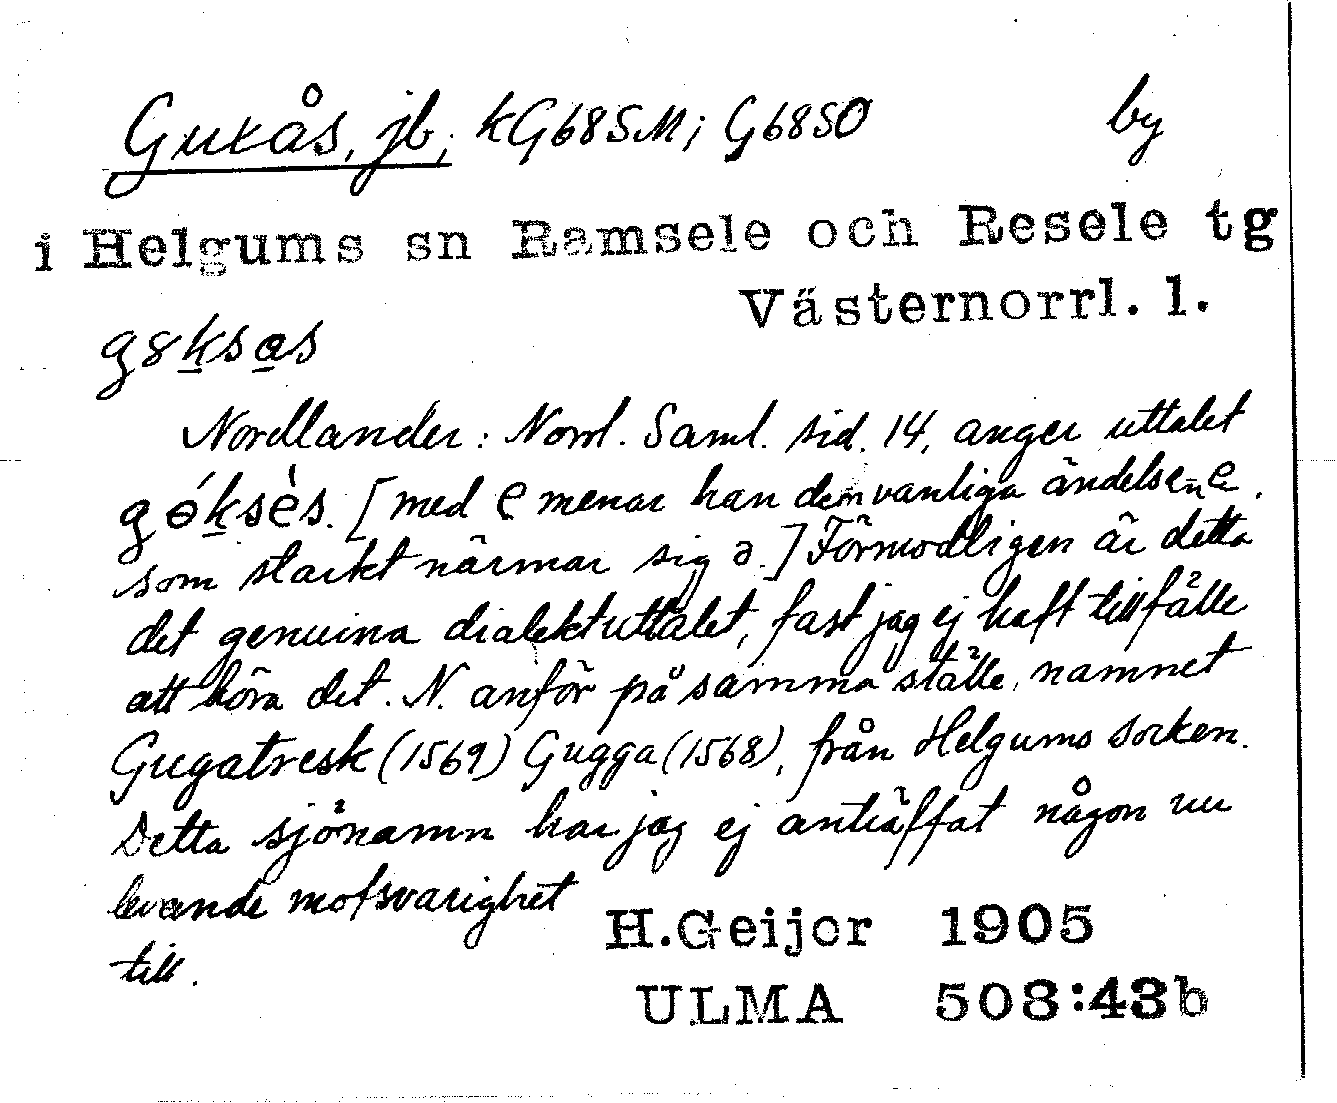 Gukås, jb, kG68SM; G68SO by
i Helgums sn Ramsele och Resele tg
Västernorrl. l.
g8ksas
Nordlander: Norrl. Saml. sid. 14, anger uttalet
gɵ́ksès. [med e menar han den vanliga ändelsen e
som starkt närmar sig ə.] Förmodligen är detta
det genuina dialektuttalet, fast jag ej haft tillfälle
att höra det. N. anför på samma ställe, namnet
Gugatresk (1569) Gugga (1568), från Helgums socken.
Detta sjönamn har jag ej anträffat någon nu
levande motsvarighet
till.
H.Geijer 1905
ULMA 508:43b